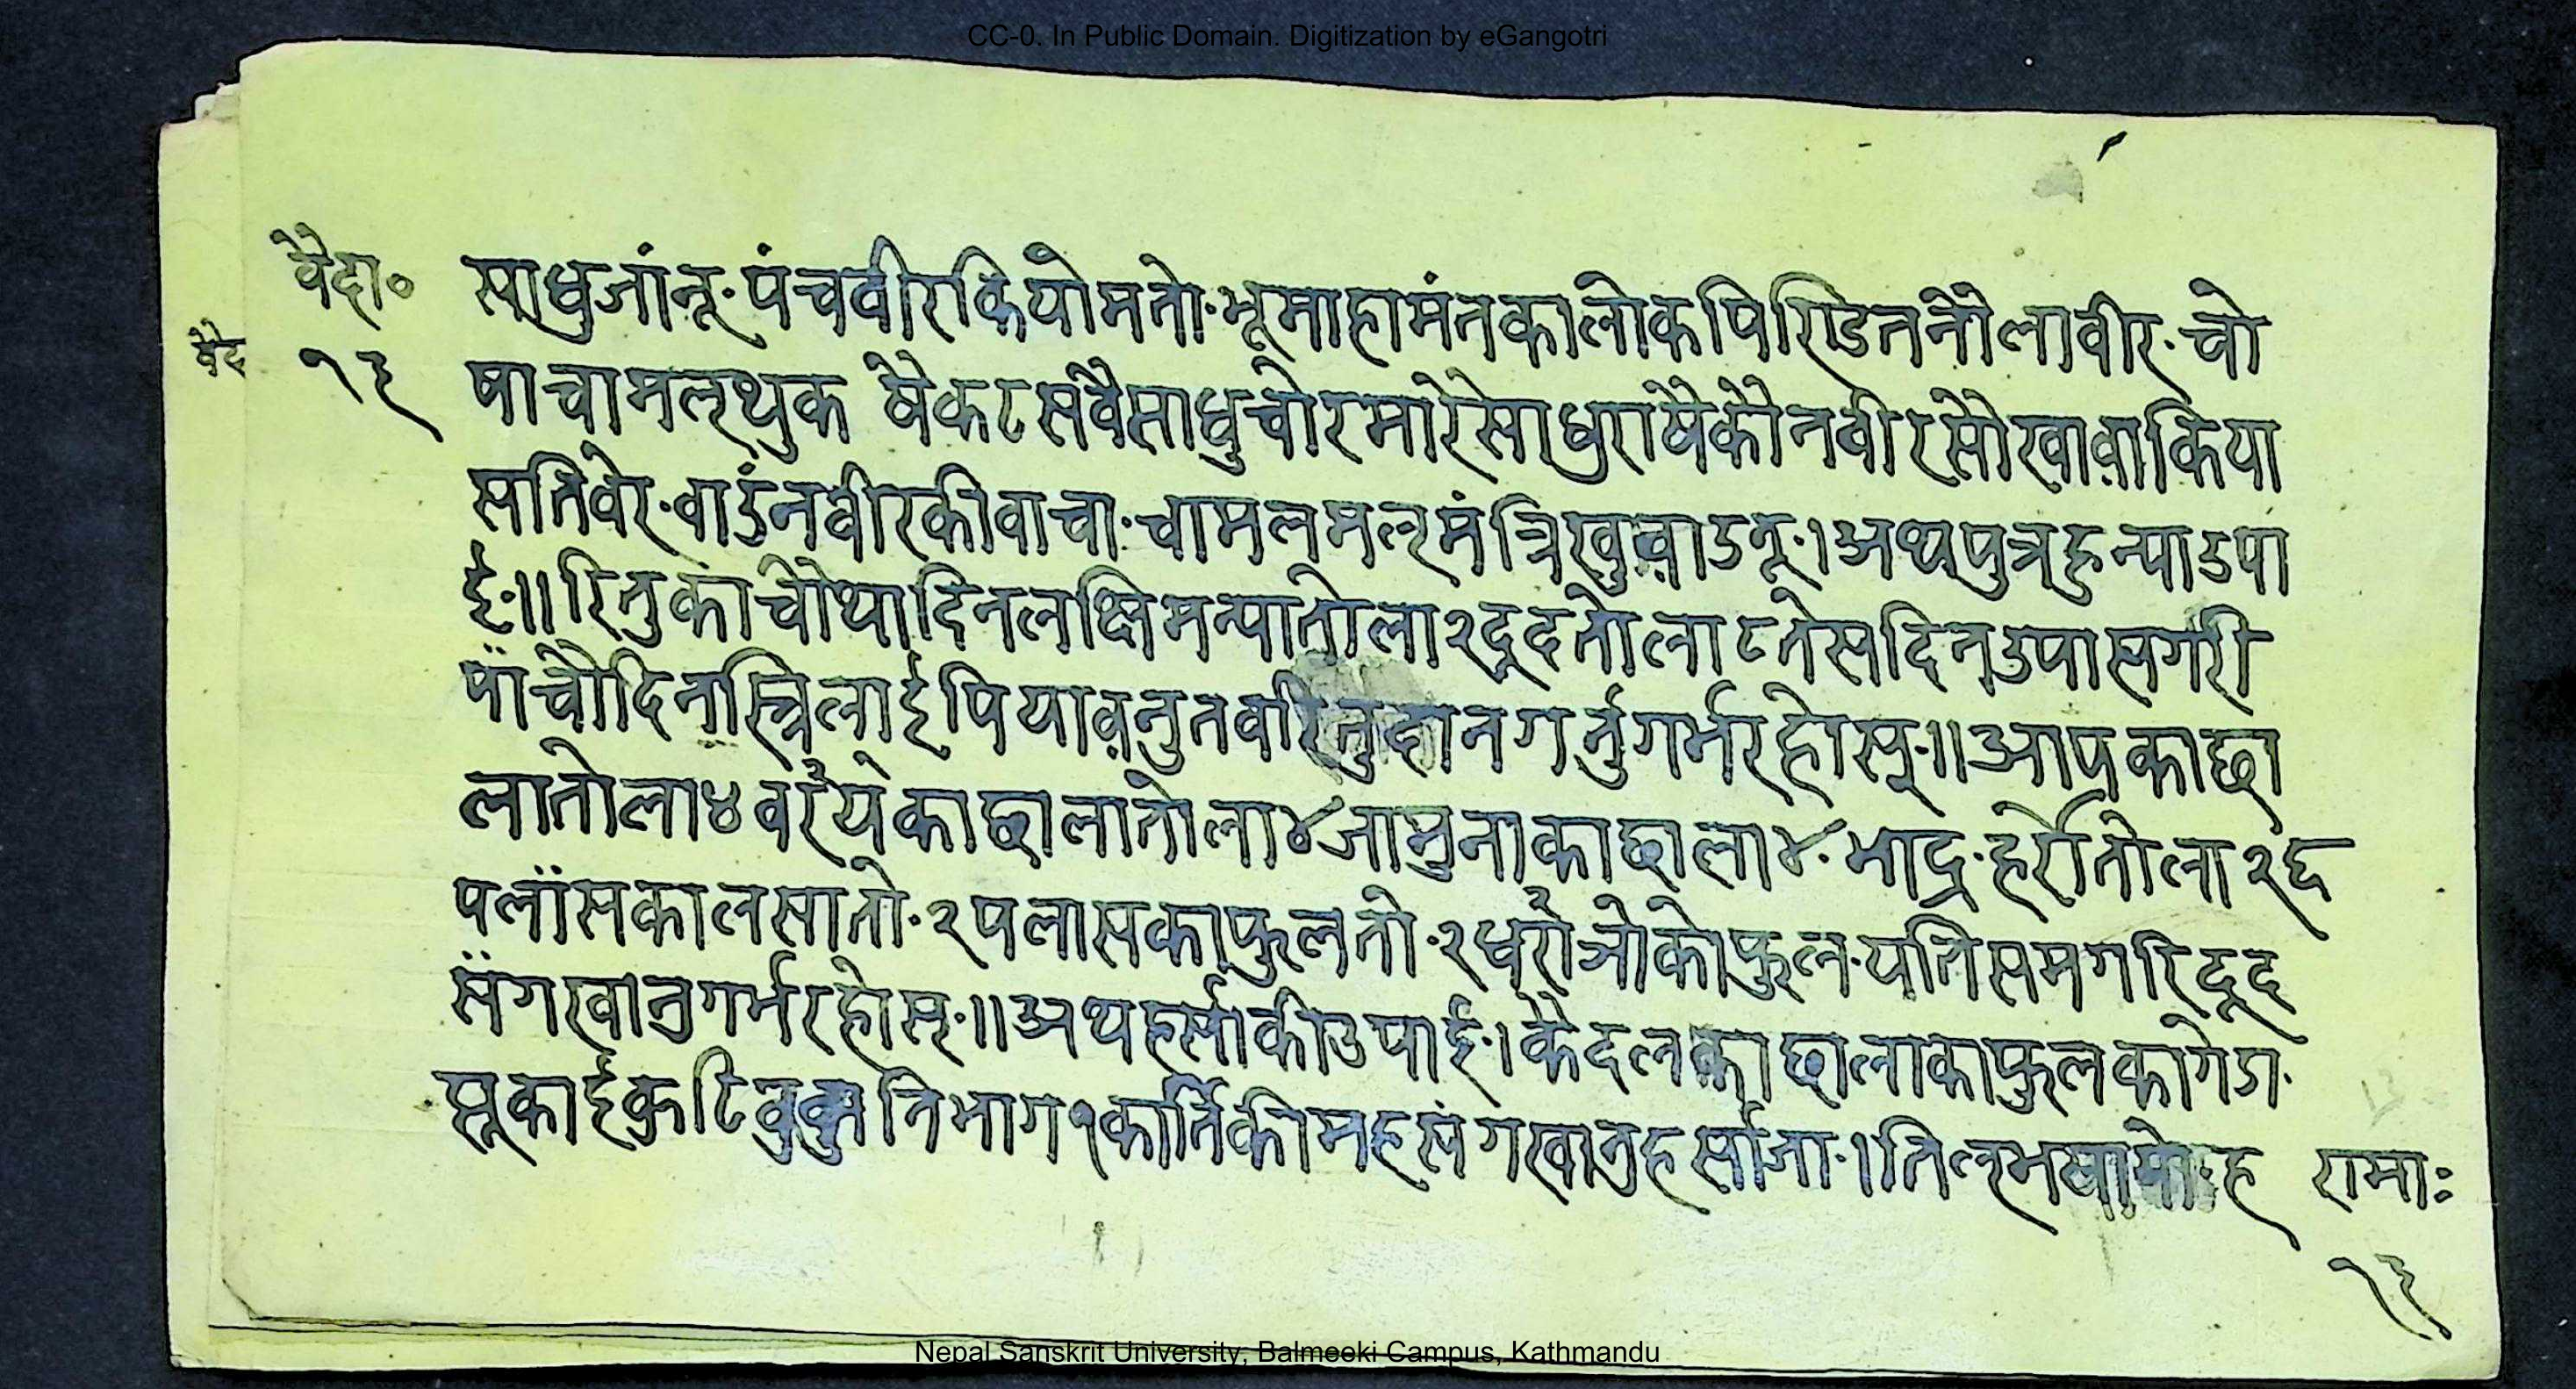 CC-0. In Public Domain. Digitization by eGangotri
वैद्य० साधुजांनू· पंचवीरकियोमतो· भूमाहामंतकालोकपिरिडतनौलावीर· चो
वैद १३ षाचामलथुक षैकटसवैसाधुचोरमारेसाधुराषैकौनवीरसौखावाकिया
सतिवेर· वाउंनवीरकीवाचा· चामलमलमंत्रिखुवाउनू·।अथपुत्रहुन्याउपा
ई·॥रितुकाचौथादिनलक्षिमन्यातोला२दूदतोला८तेसदिन्उपासगरी
पांचौदिनास्त्रिलाईपियावनुतवरितुदानगर्नुगर्भरहोस्·॥आपकाछा
लातोला४वरयेकाछालातोला४जामुनाकाछाला४· भाद्र· हर्रोतोला२छ
पलासकालसातो·२पलासकाफुलतो·२धरोत्रोकोफुल· यतिसमगरिदूद
संगखानुगर्भरहोस्·॥अथहर्साकीउपाई·।कैदलकाछालाकाफुलकागेडा·
सूकाईकुटिवुकुनिभाग१कार्तिकीमहसंगखानुहर्साजा·।तिल ह रामाः
१३
Nepal Sanskrit University, Balmeeki Campus, Kathmandu